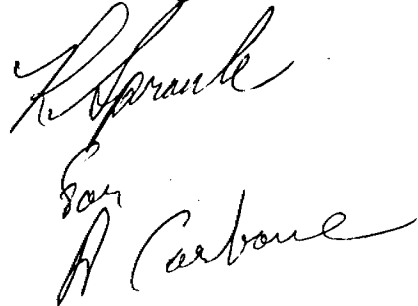 K. Sprankle
for
A Carbone